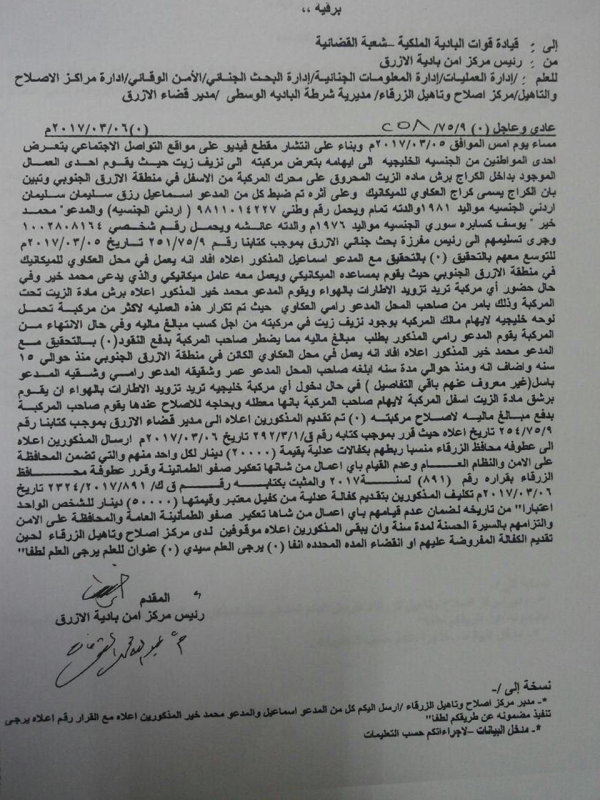 برقية ,,
إلى : قيادة قوات البادية الملكية –شعبة القضائية
من : رئيس مركز امن بادية الازرق
للعلم : /إدارة العمليات/إدارة المعلومات الجنائية/إدارة البحث الجنائي/الأمن الوقائي/ادارة مراكز الاصلاح
والتاهيل/مركز اصلاح وتاهيل الزرقاء/ مديرية شرطة الباديه الوسطى /مدير قضاء الازرق
عادي وعاجل (٠) ٧٥/٩/ ٢٥٨ (٠)٢٠١٧/٠٣/٠٦م
مساء يوم امس الموافق ٢٠١٧/٠٣/٠٥م وبناء على انتشار مقطع فيديو على مواقع التواصل الاجتماعي بتعرض
احدى المواطنين من الجنسيه الخليجيه الى ايهامه بتعرض مركبته الى نزيف زيت حيث يقوم احدى العمال
الموجود بداخل الكراج برش ماده الزيت المحروق على محرك المركبة من الاسفل في منطقة الازرق الجنوبي وتبين
بان الكراج يسمى كراج العكاوي للميكانيك وعلى أثره تم ضبط كل من المدعو اسماعيل رزق سليمان سليمان
اردني الجنسيه مواليد ١٩٨١والدته تمام ويحمل رقم وطني ٩٨١١٠١٤٢٢٧ ( اردني الجنسيه) والمدعو" محمد
خير "يوسف كسابره سوري الجنسيه مواليد ١٩٧٦م والدته عائشه ويحمل رقم شخصي ١٠٠٢٨٠٨١٦٤
وجرى تسليمهم الى رئيس مفرزة بحث جنائي الازرق بموجب كتابنا رقم ٢٥١/٧٥/٩ تاريخ ٢٠١٧/٠٣/٠٥م
للتوسع معهم بالتحقيق (٠) بالتحقيق مع المدعو اسماعيل المذكور اعلاه افاد انه يعمل في محل العكاوي للميكانيك
في منطقة الازرق الجنوبي حيث يقوم بمساعده الميكانيكي ويعمل معه عامل ميكانيكي والذي يدعى محمد خير وفي
حال حضور أي مركبة تريد تزويد الاطارات بالهواء ويقوم المدعو محمد خير المذكور اعلاه برش مادة الزيت تحت
المركبة وذلك بامر من صاحب المحل المدعو رامي العكاوي حيث تم تكرار هذه العمليه لاكثر من مركبة تحمل
لوحه خليجيه لايهام مالك المركبه بوجود نزيف زيت في مركبته من اجل كسب مبالغ ماليه وفي حال الانتهاء من
المركبة يقوم المدعو رامي المذكور بطلب مبالغ ماليه مما يضطر صاحب المركبة بدفع النقود(٠) بالتحقيق مع
المدعو محمد خير المذكور اعلاه افاد انه يعمل في محل العكاوي الكائن في منطقة الازرق الجنوبي منذ حوالي ١٥
سنه واضاف انه ومنذ حوالي مدة سنه ابلغه صاحب المحل المدعو عمر وشقيقه المدعو رامي وشقيه المدعو
باسل(غير معروف عنهم باقي التفاصيل ) في حال دخول أي مركبة خليجيه تريد تزويد الاطارات بالهواء ان يقوم
برشق مادة الزيت اسفل المركبة لايهام صاحب المركبة بانها معطله وبحاجه للاصلاح عندها يقوم صاحب المركبة
بدفع مبالغ ماليه لاصلاح مركبته (٠) تم تقديم المذكورين اعلاه الى مدير قضاء الازرق بموجب كتابنا رقم
٢٥٤/٧٥/٩ تاريخ اعلاه حيث قرر بموجب كتابه رقم ق/٢٩٢/٣/١ تاريخ ٢٠١٧/٠٣/٠٦م ارسال المذكورين اعلاه
الى عطوفه محافظ الزرقاء منسبا ربطهم بكفالات عدلية بقيمة (٢٠٠٠٠) دينار لكل واحد منهم والتي تضمن المحافظة
على الامن والنظام العام وعدم القيام باي اعمال من شانها تعكير صفو الطمانينة وقرر عطوفة محافظ
الزرقاء بقراره رقم (٨٩١) لسنة ٢٠١٧ والمثبت بكتابه رقم ق ك/ ٢٣٢٤/٢٠١٧/٨٩١ تاريخ
٢٠١٧/٠٣/٠٦م تكليف المذكورين بتقديم كفالة عدلية من كفيل معتبر وقيمتها (٥٠٠٠٠) دينار للشخص الواحد
اعتبارا" من تاريخه لضمان عدم قيامهم باي اعمال من شاها تعكير صفو الطمأنينة العامة والمحافظة على الامن
والتزامهم بالسيرة الحسنة لمدة سنة وان يبقى المذكورين اعلاه موقوفين لدى مركز اصلاح وتاهيل الزرقاء لحين
تقديم الكفالة المفروضة عليهم او انقضاء المده المحدده انفا (٠) يرجى العلم سيدي (٠) عنوان للعلم يرجى العلم لطفا"
المقدم
رئيس مركز امن بادية الازرق
نسخة إلى /-
*- مدير مركز اصلاح وتاهيل الزرقاء /ارسل اليكم كل من المدعو اسماعيل والمدعو محمد خير المذكورين اعلاه مع القرار رقم اعلاه يرجى
تنفيذ مضمونه عن طريقكم لطفا"
*- مدخل البيانات –لاجراءاتكم حسب التعليمات